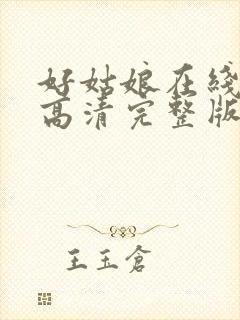 好姑娘在线
高清完整版
王玉仓